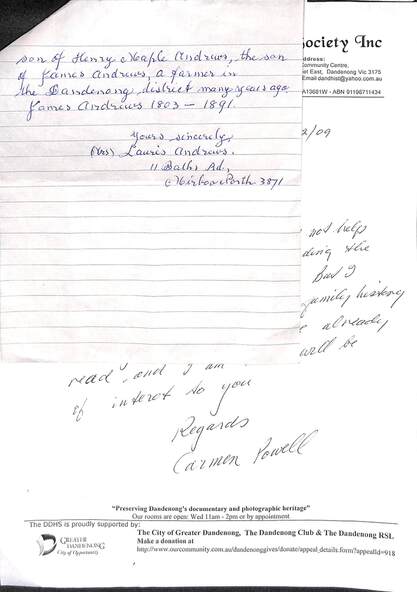 son of Henry Maple Andrews, the son
of James Andrews, a farmer in
the Dandenong district many years ago
James Andrews 1803 – 1891.
Yours sincerely,
(Mrs) Lauris Andrews.
11 Baths Rd,
Mirboo North 3871
ociety Inc
ddress:
ommunity Centre,
et East, Dandenong Vic 3175
Email dandhist@yahoo.com.au
A13681W - ABN 91198711434
2/09
not help
ding the
But I
family history
already
will be
read, and I am
of interest to you
Regards
Carmen Powell
"Preserving Dandenong's documentary and photographic heritage"
Our rooms are open: Wed 11am - 2pm or by appointment
The DDHS is proudly supported by:
GREATER
DANDENONG
City of Opportunity
The City of Greater Dandenong, The Dandenong Club & The Dandenong RSL
Make a donation at
http://www.ourcommunity.com.au/dandenonggives/donate/appeal_details.form?appealId=918